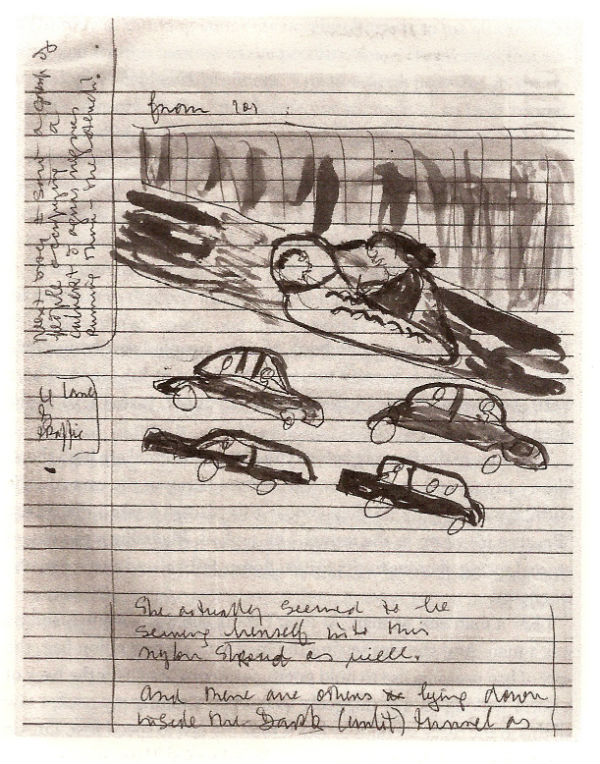 from
Next I saw a group of
people occupying
a
aguas negras
running thru - the stench!
4 lane
traffic
She actually seemed to be
sewing herself into this
nylon shroud as well.
And there are others lying down
inside the Dark (unlit) tunnel as